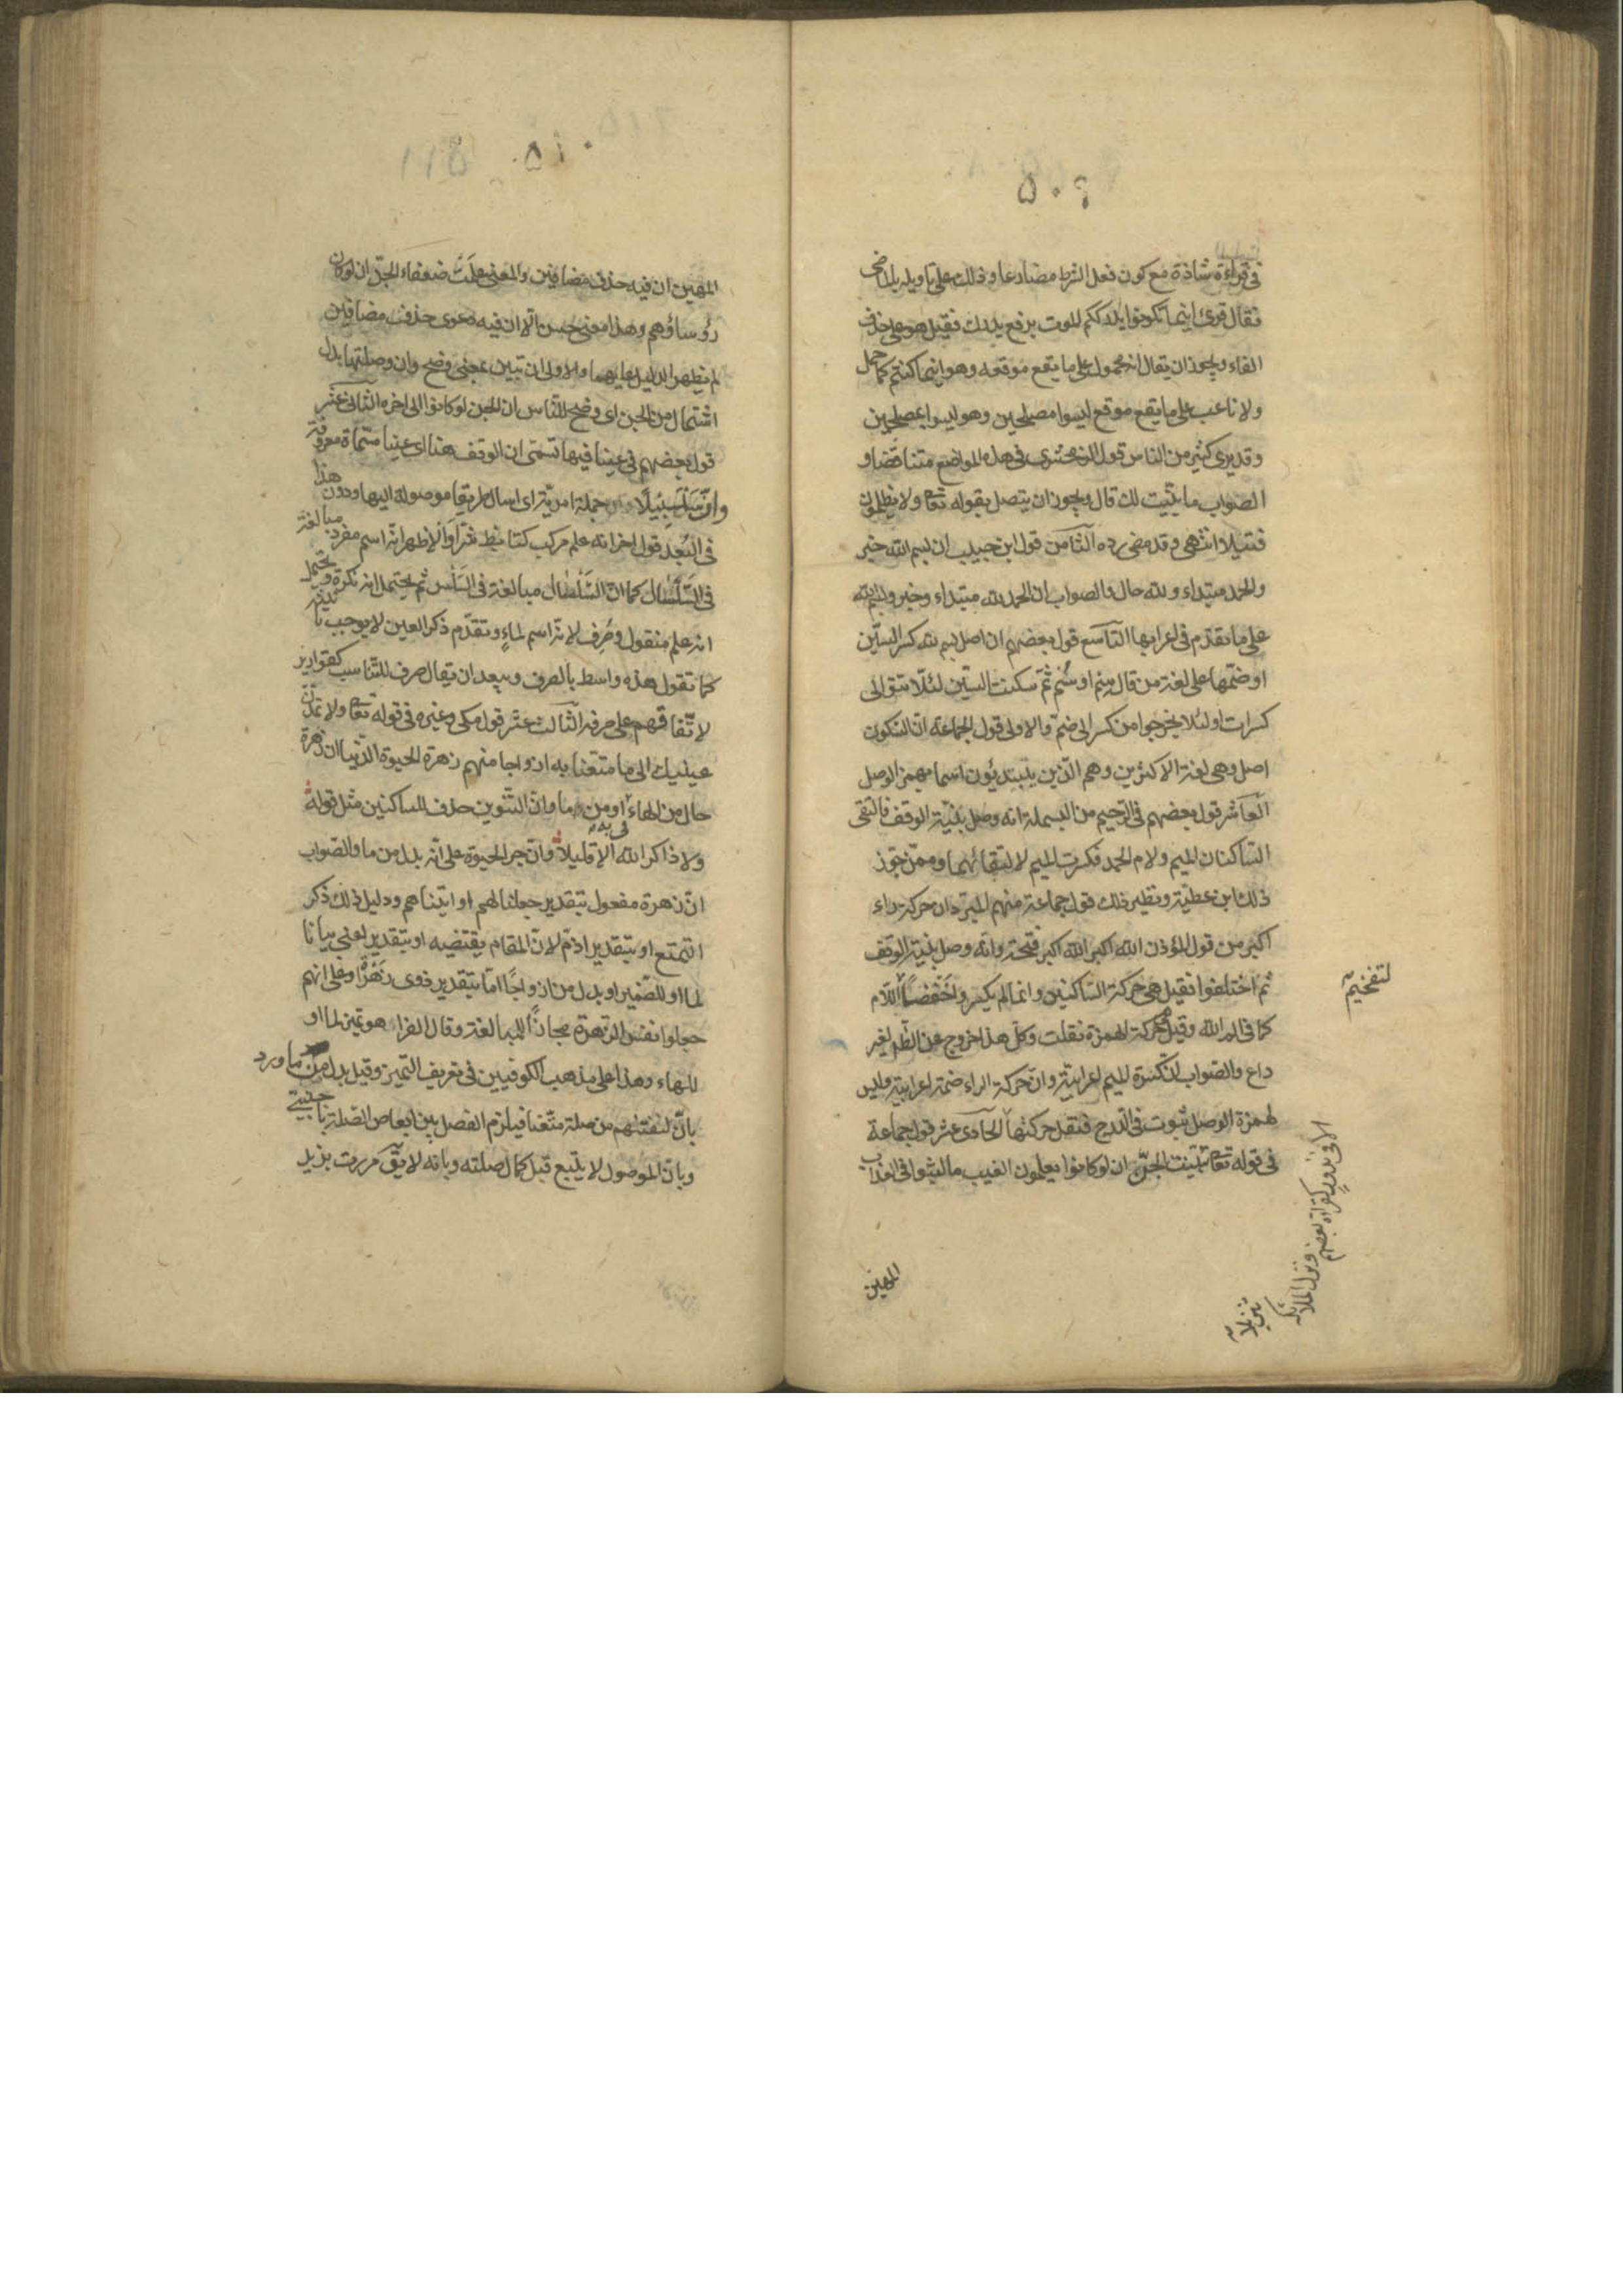 ٥٠٩
فى قراءة شاذة مع كون فعل الشرط مضارعا وذلك على تاويله بالماضى
فقال قرئ اينما تكونوا يدرككم الموت برفع يدرك فقيل هو على حذف
الفاء ويجوز ان يقال انه محمول على ما يقع موقعه وهو اينما كنتم كما حمل
ولا ناعب على ما يقع موقع ليسوا مصلحين وهو ليسوا بمصلحين
وقد يرى كثير من الناس قول الزمخشرى فى هذه المواضع متناقضا و
الصواب ما بينت لك قال ويجوز ان يتصل بقوله تعا ولا يظلمون
فتيلا انتهى وقد مضى رده الثامن قول ابن حبيب ان بسم الله خبر
والحمد مبتداء ولله حال والصواب ان الحمد لله مبتداء وخبر وبسم الله
على ما تقدم فى اعرابها التاسع قول بعضهم ان اصل بسم لله كسر السين
او ضمها على لغة من قال سِم او سُم ثم سكنت السين لئلا يتوالى
كسرات او لئلا يخرجوا من كسر الى ضم والاولى قول الجماعة ان السكون
اصل وهى لغة الاكثرين وهم الذين يبتدئون اسما بهمز الوصل
العاشر قول بعضهم فى الرحيم من البسملة انه وصل بنية الوقف فالتقى
الساكنان الميم ولام الحمد فكسرت الميم لالتقائهما وممن جوز
ذلك ابن عطية ونظير ذلك قول جماعة منهم المبرد ان حركة راء
اكبر من قول المؤذن الله اكبر الله اكبر فتحة وانه وصل بنية الوقف
ثم اختلفوا فقيل هى حركة الساكنين وانما لم يكسر واحفظا اللام
لتفخيم
كما فى الم الله وقيل حركة الهمزة نقلت وكل هذا خروج عن الظ لغير
داع والصواب ان كسرة الميم اعرابية وان حركة الراء ضمة اعرابية وليس
لهمزة الوصل ثبوت فى الدرج فتنقل حركتها الحادى عشر قول جماعة
الا فى ندور كقراءة بعضهم ونزل الملائكة
تنزيلا
فى قوله تعا تبينت الجن ان لو كانوا يعلمون الغيب ما لبثوا فى العذاب
المهين
٥١٠
المهين ان فيه حذف مضافين والمعنى علمت ضعفاء الجن ان لو كان
رؤساؤهم وهذا معنى حسن الا ان فيه دعوى حذف مضافين
لم يظهر الدليل عليهما والاولى ان تبين بمعنى وضح وان وصلتها بدل
اشتمال من الجن اى وضح للناس ان الجن لو كانوا الى اخره الثانى عشر
قول بعضهم فى عينا فيها تسمى ان الوقف هنا اى عينا مسماة معروفة
وان سلسبيلا جملة امرية اى اسال طريقا موصولة اليها ودون هذا
فى البعد قول اخر انه علم مركب كتابط شرا والاظهر انه اسم مفرد مبالغة
فى السلسال كما ان السلسال مبالغة فى السلس ثم يحتمل انه نكرة ويحتمل
انه علم منقول وصرف لانه اسم لماء وتقدم ذكر العين لا يوجب تانيثه
كما تقول هذه واسط بالصرف ويبعد ان يقال صرف للتناسب كقوارير
لاتفاقهم على صرفه الثالث عشر قول مكى وغيره فى قوله تعا ولا تمدن
عينيك الى ما متعنا به ازواجا منهم زهرة الحيوة الدنيا ان زهرة
حال من الهاء فى به او من ما وان التنوين حذف للساكنين مثل قوله
ولا ذاكر الله الا قليلا وان جر الحيوة على انه بدل من ما والصواب
ان زهرة مفعول بتقدير جعلنا لهم او اتيناهم ودليل ذلك ذكر
التمتع او بتقدير اذم لان المقام يقتضيه او بتقدير اعنى بيانا
لما او للضمير او بدل من ازواجا اما بتقدير ذوى زهرة او على انهم
جعلوا نفس الزهرة مجازا للمبالغة وقال الفراء هو تميز لما او
للهاء وهذا على مذهب الكوفيين فى تعريف التميز وقيل بدل من ما ورد
بان لنفتنهم من صلة متعنا فيلزم الفصل بين ابعاض الصلة باجنبى
وبان الموصول لا يتبع قبل كمال صلته وبانه لا يق مررت بزيد